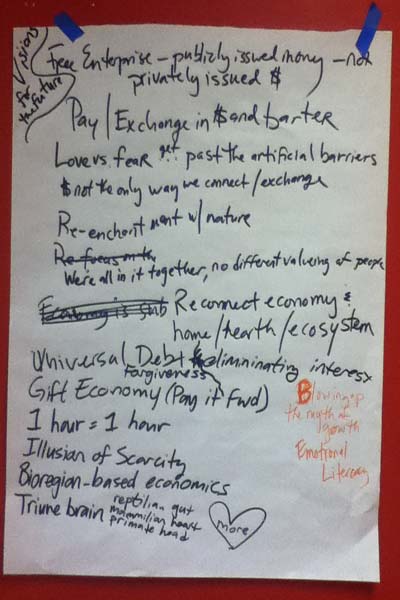 Visions for the future
Free Enterprise – publicly issued money – not
privately issued $
Pay / Exchange in $ and barter
Love vs. fear get past the artificial barriers
$ not the only way we connect / exchange
Re-enchantment w/ nature
Re-focus on th
We're all in it together, no different valueing of people
Economy is sub Reconnect economy &
home / hearth / ecosystem
Universal Debt elimminating interest
forgiveness
Gift Economy (Pay it Fwd)
1 hour = 1 hour
Illusion of Scarcity
Bioregion-based economics
Triune brain reptilian gut
mammilian heart
primate head
more
Blowing up
the myth of
growth
Emotional
Literacy